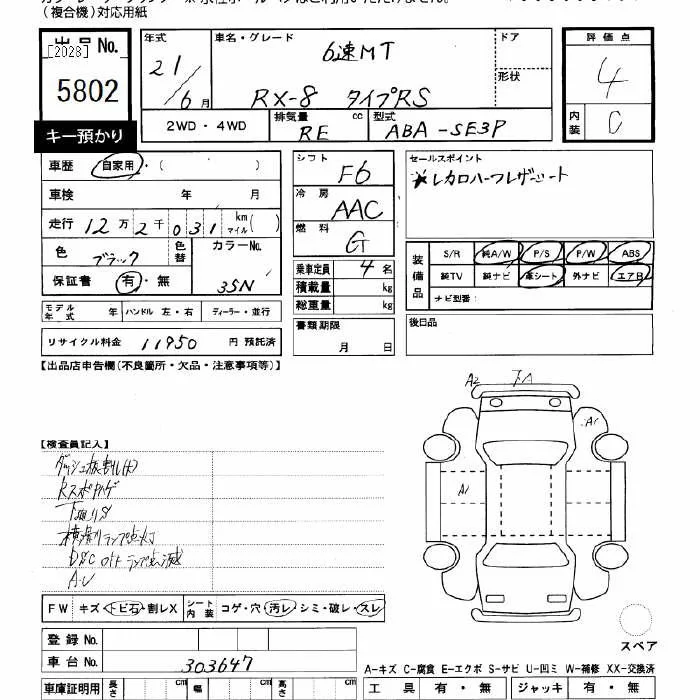 (複合機)対応用紙
出品No.
[2028]
5802
キー預かり
年式 車名・グレード ドア 形状
21/6月 6速MT
RX-8 タイプRS
2WD・4WD 排気量 RE cc 型式 ABA-SE3P
評価点 4
内装 C
車歴 自家用・( )
車検 年 月
走行 12万2千031 km マイル( )
色 ブラック 色替 カラーNo. 35N
保証書 有・無
シフト F6
冷房 AAC
燃料 G
乗車定員 4名
積載量 kg
総重量 kg
書類期限 月 日
セールスポイント
★レカロハーフレザーシート
装備品 S/R 純A/W P/S P/W ABS
純TV 純ナビ 革シート 外ナビ エアB
ナビ型番:
モデル年式 年 ハンドル 左・右 ディーラー・並行
リサイクル料金 11950 円 預託済
後日品
【出品店申告欄(不良箇所・欠品・注意事項等)】
A2
A1
A1
【検査員記入】
横滑りランプ点灯
DSC OFFランプ点滅
FW キズ・トビ石・割レX シート内装 コゲ・穴・汚レ・シミ・破レ・スレ
スペア
登録No.
車台No. 303647
車庫証明用 長さ cm 幅 cm 高さ cm
A-キズ C-腐食 E-エクボ S-サビ U-凹ミ W-補修 XX-交換済
工具 有・無 ジャッキ 有・無